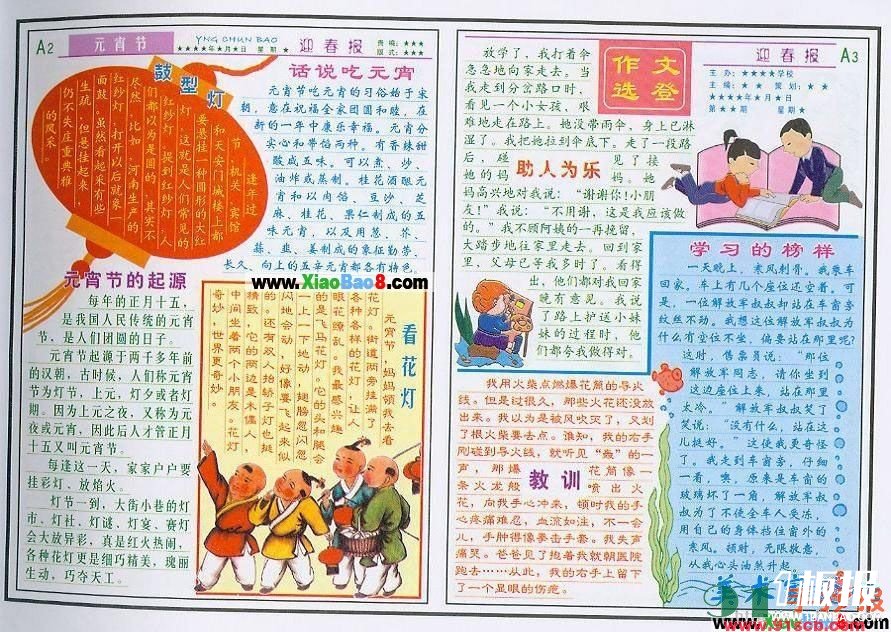 A2
元宵节
YNG CHUN BAO
★★★★年★月★日 星期★
迎春报
责编:★★★
版式:★★★
鼓型灯
逢年过
节,机关、宾馆
和天安门城楼上都
要悬挂一种圆形的大红
灯,这就是人们常见的
红纱灯。提到红纱灯,人
们都以为是圆的,其实不
尽然。比如,河南生产的
红纱灯,打开以后就象一
面鼓,虽然看起来有些
生疏,但悬挂起来,
仍不失庄重典雅
的风采。
话说吃元宵
元宵节吃元宵的习俗始于宋
朝,意在祝福全家团圆和睦,在
新的一年中康乐幸福。元宵分
实心和带馅两种。有香辣甜
酸咸五味。可以煮、炒、
油炸或蒸制。桂花酒酿元
宵和以肉馅、豆沙、芝
麻、桂花、果仁制成的五
味元宵,以及用葱、芥、
蒜、韭、姜制成的象征勤劳、
长久、向上的五辛元宵都各有特色。
元宵节的起源
每年的正月十五,
是我国人民传统的元宵
节,是人们团圆的日子。
元宵节起源于两千多年前
的汉朝,古时候,人们称元宵
节为灯节,上元,灯夕或者灯
期。因为上元之夜,又称为元
夜或元宵,因此后人才管正月
十五又叫元宵节。
每逢这一天,家家户户要
挂彩灯、放焰火。
灯节一到,大街小巷的灯
市、灯社、灯谜、灯宴、赛灯
会大放异彩,真是红火热闹,
各种花灯更是细巧精美,瑰丽
生动,巧夺天工。
www.XiaoBao8.com
看花灯
元宵节,妈妈领我去看
花灯。街道两旁挂满了
各种各样的花灯,让人
眼花缭乱。我最感兴趣
的是飞马花灯。它的头和腿会
一上一下地动,翅膀忽闪忽
闪地会动,好像要飞起来似
的。还有双人抬轿子灯也挺
精致,它的两边是木偶人,
中间坐着两个小朋友。花灯
奇妙,世界更奇妙。
迎春报
A3
主办:★★★★学校
主编:★★ 策划:★★
★★★★年★月★日
第★★期 星期★
作文选登
放学了,我打着伞
急忽地向家走去。当
我走到分岔路口时,
看见一个小女孩,艰
难地走在路上。她没带雨伞,身上已淋
湿了。我把她拉到伞底下。走了一段路
后,碰见了接
她的妈妈。她
妈高兴地对我说:“谢谢你!小朋
友!”我说:“不用谢,这是我应该做
的。”我不顾阿姨的一再挽留,
大踏步地往家里走去。回到家
里,父母已等我多时了。看得
出,他们都对我回家
晚有意见。我说了
路上护送小妹
妹的过程时,他
们都夸我做得对。
助人为乐
学习的榜样
一天晚上,寒风刺骨。我乘车
回家。车上有几个座位还空着。可
是,一位解放军叔叔却站在车窗旁
纹丝不动。我想这位解放军叔叔为什
么有空位不坐,偏要站在那里呢?
这时,售票员说:“那位
解放军同志,请你坐到
这边座位上来,站在那里
太冷。”解放军叔叔笑了
笑说:“没有什么,站在这
儿挺好。”这使我更奇怪
了。我走到车窗旁,仔细
一看,噢,原来是车窗的
玻璃坏了一角,解放军叔
叔为了不使全车人受冻,
用自己的身体挡住窗外的
寒风。顿时,无限敬意,
从我心头油然升起。
教训
我用火柴点燃爆花筒的导火
线。但是过很久,那些火花还没放
出来。我以为是被风吹灭了,又划
了根火柴要去点。谁知,我的右手
刚碰到导火线,就听见“轰”的一
声,那爆花筒像一
条火龙般喷出火
花,向我手心冲来,顿时我的手
心疼痛难忍,血流如注,不一会
儿,手肿得像拳击手套。我失声
痛哭。爸爸见了抱着我就朝医院
跑去……从此,我的右手上留下
了一个显眼的伤疤。
板报
www.91scb.com